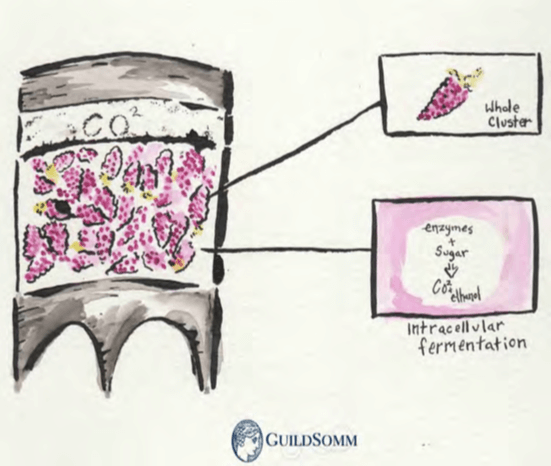 CO²
Whole
Cluster
enzymes
+
Sugar
⇓
CO²
+
ethanol
Intracellular
fermentation
GUILDSOMM